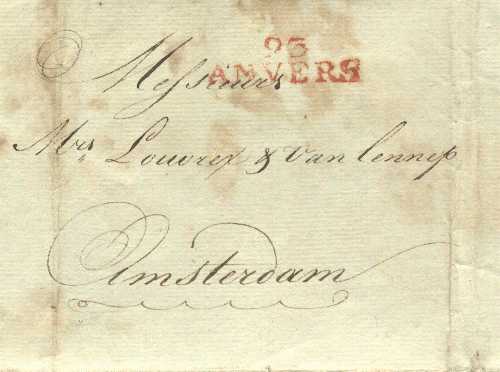 93
ANVERS
Messieurs
Mrs Louvrex & van Lennep
Amsterdam